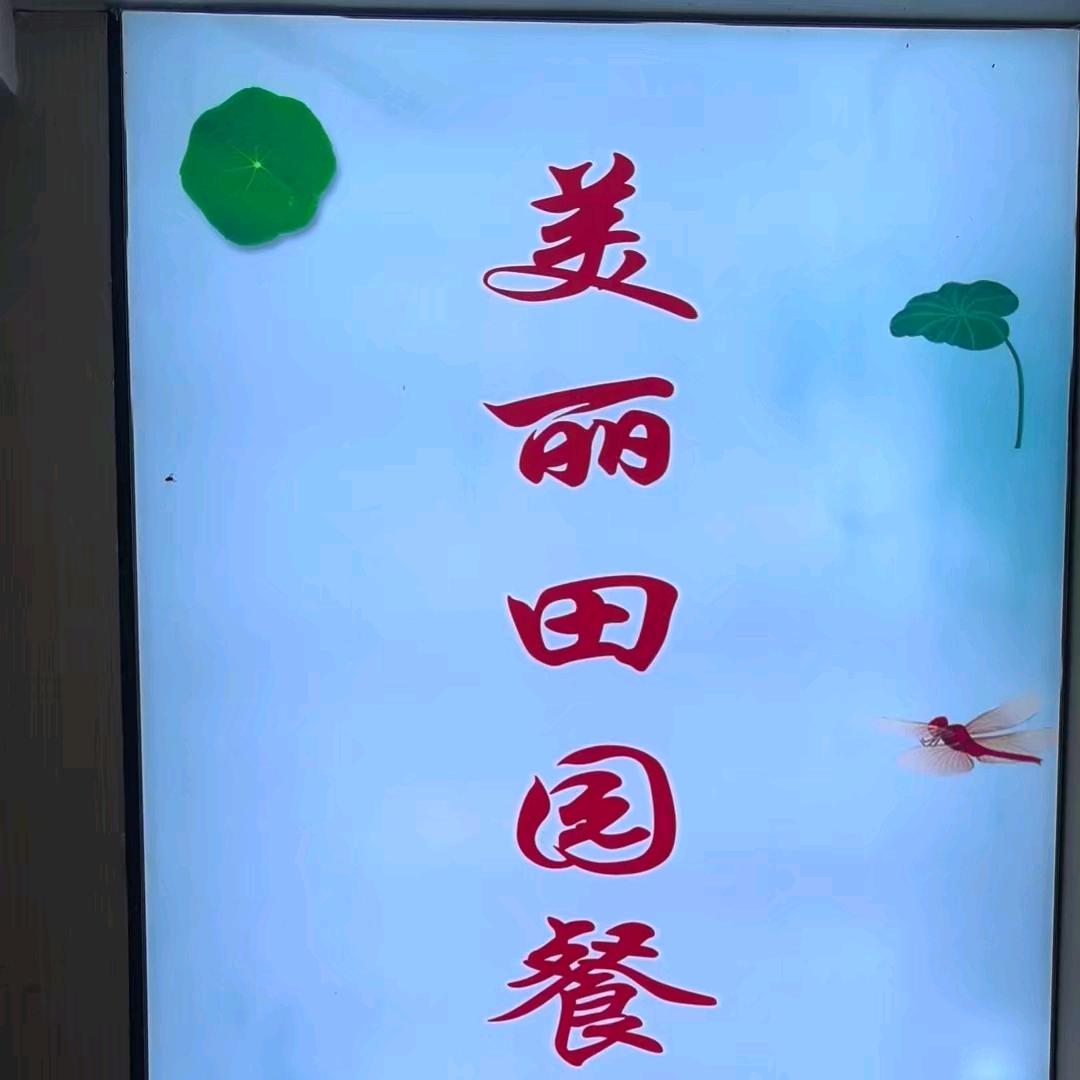 美丽田园餐